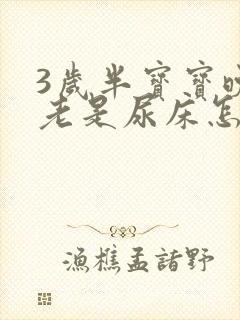 3歲半寶寶晚
老是尿床怎
漁樵孟諸野